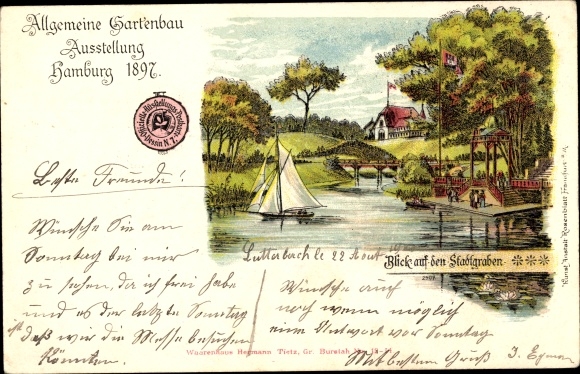 Allgemeine Gartenbau
Ausstellung
Hamburg 1897.
Lutterbach le 22 Aout
Blick auf den Stadtgraben
Wünsche Sie am
Sonntag bei mir
zu sehen, da ich frei habe
und es der letzte Sonntag
ist daß wir die Messe besuchen
könnten.
Wünsche auch
noch wenn möglich
eine Antwort vor Sonntag
Mit bestem Gruß
Waarenhaus Hermann Tietz, Gr. Burstah
Kunst Anstalt Rosenblatt Frankfurt a. M.